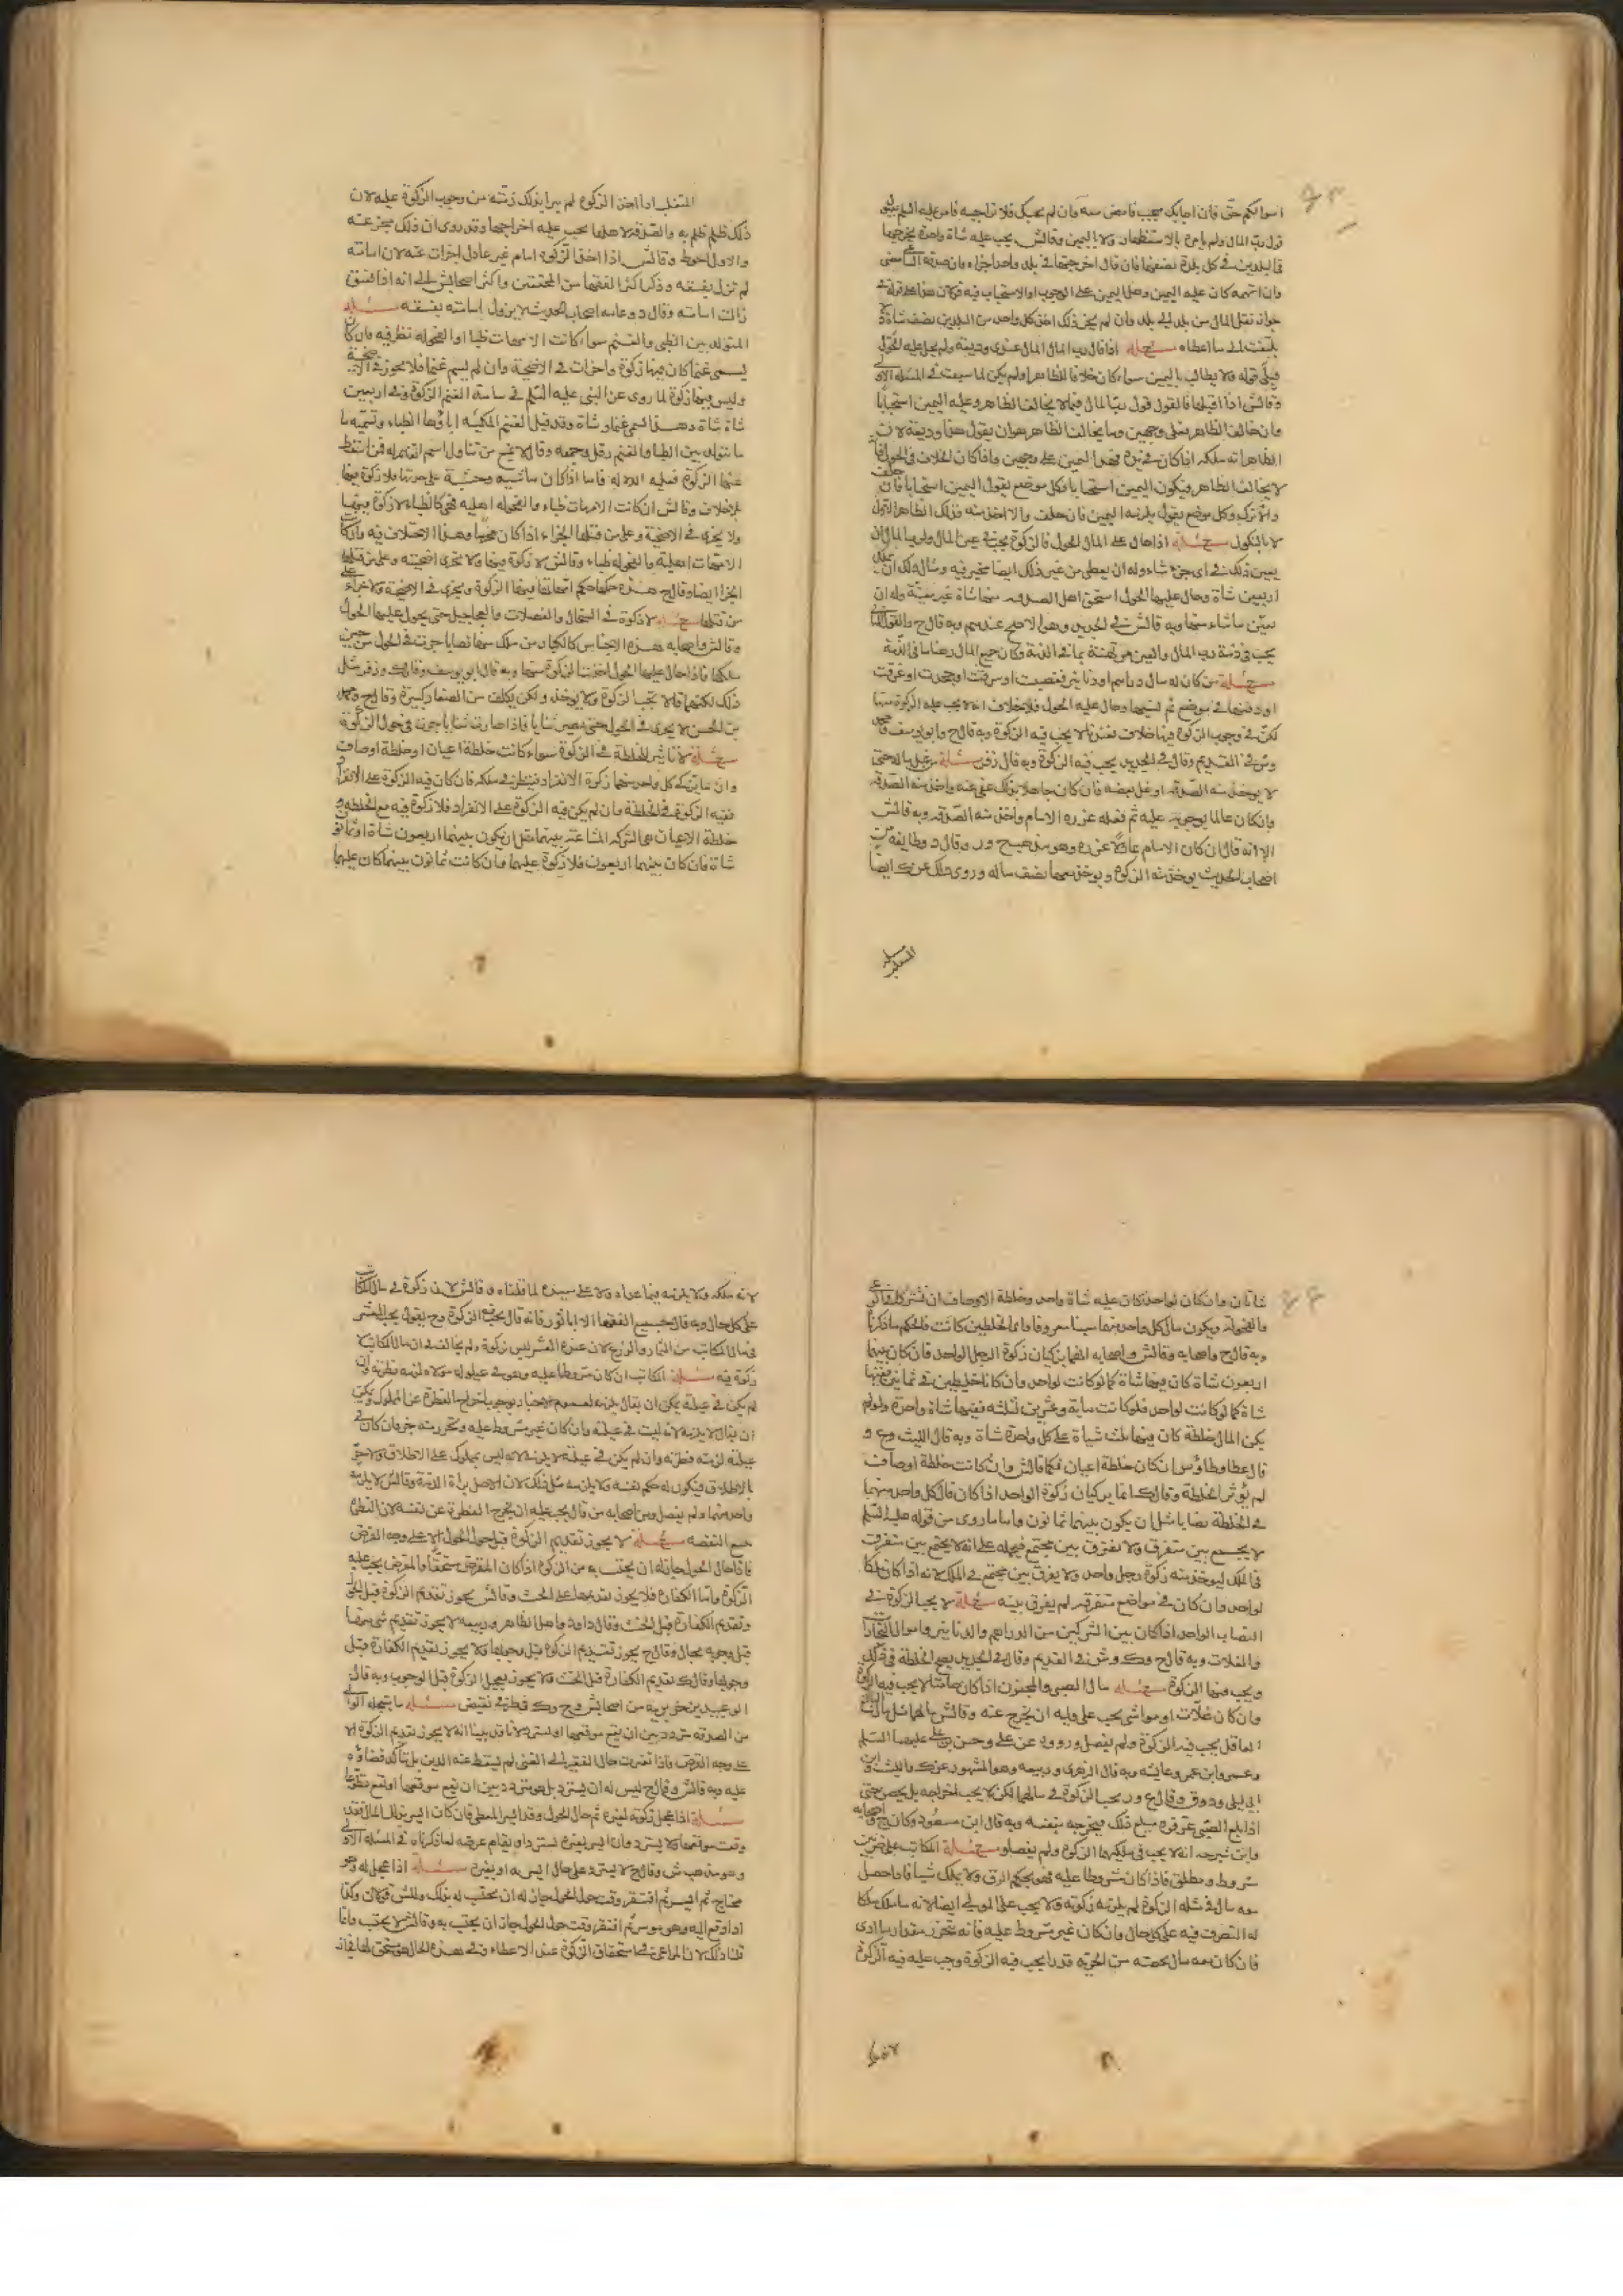 اموالكم حق فان اجابك مجيب فامض معه فان لم يجبك فلا تراجعه فامر عليه السلم بقبول
قول رب المال ولم يامر بالاستظهار ولا باليمين وقال ش يجب عليه شاة واحدة يخرجها
في البلدين في كل بلدة نصفها فان قال اخرجتها في بلد واحد اجزاه فان صدقه الساعي مضى
وان اتهمه كان عليه اليمين وهل اليمين على الوجوب او الاستحباب فيه قولان هذا على قوله
جواز نقل المال من بلد الى بلد وان لم يجز ذلك اخذ كل واحد من البلدين نصف شاة ولا
يلتفت الى ما اعطاه مسئلة اذا قال رب المال المال عندي وديعة ولم يحل عليه الحول
قبل قوله ولا يطالب باليمين سواء كان خلافا للظاهر او لم يكن لما سبق في المسئلة الاولى
وقال ش اذا اختلفا فالقول قول رب المال فيما لا يخالف الظاهر وعليه اليمين استحبابا
وان خالف الظاهر فعلى وجهين وما يخالف الظاهر هو ان يقول هذا وديعة لان
الظاهر انه ملكه اذا كان في يده فهذا اليمين على وجهين واذا كان الخلاف في الحول فانه
لا يخالف الظاهر فيكون اليمين استحبابا فكل موضع يقول اليمين استحبابا فان حلف
والا ترك وكل موضع يقول يلزمه اليمين فان حلف والا اخذ منه فذلك الظاهر الاول
لا بالنكول مسئلة اذا حال على المال الحول فالزكوة يجب في عين المال ولرب المال ان
يعين ذلك في اي جزء شاء وله ان يعطي من غير ذلك ايضا مخير فيه ومثال ذلك ان يملك
اربعين شاة وحال عليها الحول استحق اهل الصدقه منها شاة غير معينة وله ان
يعين ما شاء منها وبه قال ش في الجديد وهو الاصح عندهم وبه قال ح والقول الثاني
يجب في ذمة رب المال والعين مرتهنة بما في الذمة وكان جميع المال رهنا بما في الذمة
مسئلة من كان له مال دراهم او دنانير فغصبت او سرقت او جحدت او غرقت
او دفنها في موضع ثم نسيها وحال عليه الحول فلا خلاف انه لا يجب عليه الزكوة منها
لكن في وجوب الزكوة فيها خلاف فعندنا لا يجب فيه الزكوة وبه قال ح وابو يوسف ومحمد
وش في القديم وقال في الجديد يجب فيه الزكوة وبه قال زفر مسئلة من غل ماله حتى
لا يوخذ منه الصدقه او غل بعضه فان كان جاهلا بذلك عفى عنه واخذ منه الصدقه
وان كان عالما بوجوبه عليه ثم فعله عزره الامام واخذ منه الصدقه وبه قال ش
الا انه قال ان كان الامام عادلا عزره وهو مذهب ح ور وقال د وطايفة من
اصحاب الحديث يوخذ منه الزكوة ويوخذ معها نصف ماله وروى ذلك عن ك ايضا
مسئلة المتغلب
المتغلب اذا اخذ الزكوة لم يبرا بذلك ذمته من وجوب الزكوة عليه لان
ذلك ظلم ظلم به والصدقة لاهلها يجب عليه اخراجها وقد روى ان ذلك مجز عنه
والاول احوط وقال ش اذا اخذ الزكوة امام غير عادل اجزات عنه لان امامته
لم تزل بفسقه وذكر اكثر الفقهاء من المحققين واكثر اصحاب ش الى انه اذا فسق
زالت امامته وقال د وعامه اصحاب الحديث لا يزول امامته بفسقه مسئلة
المتولد بين الظبي والغنم سواء كانت الامهات ظباء او الفحوله نظر فيه فان كان
يسمى غنما كان فيها زكوة واجزات في الاضحية وان لم يسم غنما فلا يجوز في الاضحية
وليس فيها زكوة لما روى عن النبي عليه السلم في سائمة الغنم الزكوة وفي اربعين
شاة شاة وهذا يسمى غنما وشاة وقد قيل لغنم المكية اباؤها الظباء وتسمية ما
ما يتولد بين الظباء والغنم رقل وجمعه رقال لا يمنع من تناول اسم الغنم له فمن اسقط
عنها الزكوة فعليه الدلالة فاما اذا كان ماشية وحشية على حدتها فلا زكوة فيها
بلا خلاف وقال ش ان كانت الامهات ظباء والفحوله اهليه فهي كالظباء لا زكوة فيها
ولا يجزى في الاضحية وعلى من قتلها الجزاء اذا كان محرما وهذا لا خلاف فيه وان كانت
الامهات اهليه والفحوله ظباء وقال ش لا زكوة فيها ولا يجزى اضحية وعلى من قتلها
الجزاء ايضا وقال ح هذه حكمها حكم امهاتها فيها الزكوة ويجزى في الاضحية ولا جزاء على
من قتلها مسئلة لا زكوة في السخال والفصلان والعجاجيل حتى يحول عليها الحول
وقال ش واصحابه هذه الاجناس كالكبار من ملك منها نصابا جرت في الحول من حين
ملكها فاذا حال عليها الحول اخذت الزكوة منها وبه قال ابو يوسف وقال ك وزفر مثل
ذلك لكنهما قالا تجب الزكوة ولا يوخذ ولكن يكلف من الصغار كبيرة وقال ح ومحمد
بن الحسن لا يجرى في الحول حتى يصير ثنايا فاذا صارت ثنايا جرت في حول الزكوة
مسئلة لا تاثير للخلطة في الزكوة سواء كانت خلطة اعيان او خلطة اوصاف
وانما يزكى كل واحد منهما زكوة الانفراد فينظر في ملكه فان كان فيه الزكوة على الانفراد
ففيه الزكوة في الخلطة وان لم يكن فيه الزكوة على الانفراد فلا زكوة فيه مع الخلطة و
خلطة الاعيان هي الشركه المشاعة بينهما مثل ان يكون بينهما اربعون شاة او ثمانون
شاة فان كان بينهما اربعون فلا زكوة عليهما وان كانت ثمانون بينهما كان عليهما
شاتان وان كان لواحد كان عليه شاة واحد وخلطة الاوصاف ان يشتركا في المرعى
والفحولة ويكون مال كل واحد منهما معينا معروفا واي الخلطين كانت فالحكم ما ذكرنا
وبه قال ح واصحابه وقال ش واصحابه انهما يزكيان زكوة الرجل الواحد فان كان بينهما
اربعون شاة كان فيها شاة كما لو كانت لواحد وان كانا خليطين في ثمانين ففيها
شاة كما لو كانت لواحد فلو كانت ماية وعشرين لثلثه ففيها شاة واحدة ولو لم
يكن المال خلطة كان فيها ثلث شياة على كل واحد شاة وبه قال الليث وع و
قال عطا وطاوس ان كان خلطة اعيان فكما قال ش وان كانت خلطة اوصاف
لم يوثر الخلطة وقال ك انما يزكيان زكوة الواحد اذا كان مال كل واحد منهما
في الخلطة نصابا مثل ان يكون بينهما ثمانون واما ما روى من قوله عليه السلم
لا يجمع بين متفرق ولا يفرق بين مجتمع فيحمله على انه لا يجمع بين متفرق
في الملك ليوخذ منه زكوة رجل واحد ولا يفرق بين مجتمع في الملك لانه اذا كان ملكا
لواحد وان كان في مواضع متفرقه لم يفرق بينه مسئلة لا يجب الزكوة في
النصاب الواحد اذا كان بين الشريكين من الدراهم والدنانير واموال التجارات
والغلات وبه قال ح وك وش في القديم وقال في الجديد يصح الخلطة في ذلك
ويجب فيها الزكوة مسئلة مال الصبي والمجنون اذا كان صامتا لا يجب فيه الزكوة
وان كان غلات او مواشي يجب على وليه ان يخرج عنه وقال ش مالهما كمال البالغ
العاقل يجب فيه الزكوة ولم يفصل ورووه عن علي وحسن بن علي عليهما السلم
وعمر وابن عمر وعايشه وبه قال الزهري وربيعه وهو المشهور عن ك والليث وابن
ابي ليلى ود وق وقال ع ور يجب الزكوة في مالهما لكن لا يجب اخراجه بل يحصى حتى
اذا بلغ الصبي عرفوه مبلغ ذلك فيخرجه بنفسه وبه قال ابن مسعود وكان ح واصحابه
وابن شبرمه انه لا يجب في ملكهما الزكوة ولم يفصلوا مسئلة المكاتب على ضربين
مشروط ومطلق فاذا كان مشروطا عليه فهو بحكم الرق ولا يملك شيئا فما حصل
معه مال في مثله الزكوة لم يلزمه زكوته ولا يجب على المولى ايضا لانه ما ملك ملكا
له التصرف فيه على كل حال وان كان غير مشروط عليه فانه يتحرر منه مقدار ما ادى
فان كان معه مال يحصه من الحرية قدر ما يجب فيه الزكوة وجب عليه فيه الزكوة
لانه ملكه
لانه ملكه ولا يلزمه فيما عداه ولا على سيده لما قلناه وقال ش لا زكوة في مال المكاتب
على كل حال وبه قال جميع الفقهاء الا ابا ثور فانه قال يجب فيه الزكوة وح يقول يجب العشر
في مال المكاتب من الثمار والزرع لان عنده العشر ليس بزكوة ولم يخالف في ان مال المكاتب لا
زكوة فيه مسئلة المكاتب ان كان مشروطا عليه وهو في عيلولة مولاه لزمه فطرته وان
لم يكن في عيلته يمكن ان يقال يلزمه لعموم الاخبار بوجوب اخراج الفطرة عن المملوك ويمكن
ان يقال لا يلزمه لانه ليس في عيلته وان كان غير مشروط عليه وتحرر منه جزء فان كان في
عيلته لزمته فطرته وان لم يكن في عيلته لا يلزمه لانه ليس بمملوك على الاطلاق ولا حر
بالاطلاق فيكون له حكم نفسه ولا يلزمه مثل ذلك لان الاصل براءة الذمة وقال ش لا يلزمه
واحدا منهما ولم يفصل ومن اصحابه من قال يجب عليه ان يخرج الفطرة عن نفسه لان الفطرة
تتبع النفقه مسئلة لا يجوز تقديم الزكوة قبل حول الحول الا على وجه القرض
فاذا حال الحول جاز له ان يحتسب به من الزكوة اذا كان المقترض مستحقا والمقرض يجب عليه
الزكوة واما الكفارة فلا يجوز تقديمها على الحنث وقال ش يجوز تقديم الزكوة قبل الحول
وتقديم الكفارة قبل الحنث وقال داود واهل الظاهر وربيعه لا يجوز تقديم شيء منهما
قبل وجوبه بحال وقال ح يجوز تقديم الزكوة قبل وجوبها ولا يجوز تقديم الكفارة قبل
وجوبها وقال ك تقديم الكفارة قبل الحنث ولا يجوز تعجيل الزكوة قبل الوجوب وبه قال
ابو عبيد بن خربويه من اصحاب ش وح وك في طرفي نقيض مسئلة ما يتعجله الوالي
من الصدقه متردد بين ان يقع موقعها او يسترد لانا قد بينا انه لا يجوز تقديم الزكوة الا
على وجه القرض فاذا تغيرت حال الفقير الى الغنى لم يسقط عنه الدين بل يتاكد قضاؤه
عليه وبه قال ش وقال ح ليس له ان يسترد بل هو متردد بين ان يقع موقعها او يقع تطوعا
مسئلة اذا عجل زكوته لغيره ثم حال الحول وقد ايسر المعطى فان كان ايسر بذلك المال فقد
وقعت موقعها ولا يسترد وان ايسر بغيره يسترد او يقام عوضه لما ذكرناه في المسئلة الاولى
وهو مذهب ش وقال ح لا يسترد على حال ايسر به او بغيره مسئلة اذا عجل له وهو
محتاج ثم ايسر ثم افتقر وقت حول الحول جاز له ان يحتسب له بذلك وللش قولان وكذا
اذا دفع اليه وهو موسر ثم افتقر وقت حول الحول جاز ان يحتسب به وقال ش لا يحتسب وانما
قلنا ذلك لان المراعى في استحقاق الزكوة عند الاعطاء وفي هذه الحال هو مستحق لها فجاز